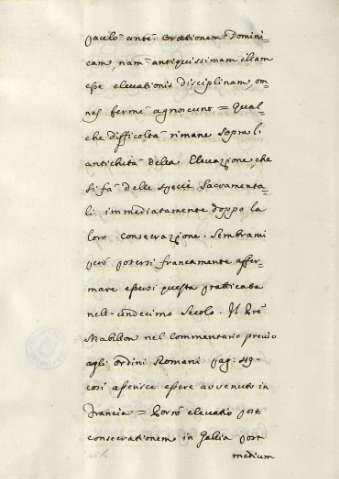 paulò ante orationem Domini=
cam, nam antiquissimam illam
esse elevationis disciplinam, om=
nes fermè agnoscunt = Qual=
che difficoltà rimane sopra l'
antichità della Elevazione, che
si fà delle specie Sacramenta=
li immediatamente doppo la
loro consecrazione. Sembrami
però potersi francamente affer=
mare essersi questa pratticata
nell' undecimo Secolo. Il
Mabillon nel commentario previo
agli Ordini Romani pag: 49.
così asserisce essere avvenuto in
Francia = Porrò elevatio post
consecrationem in Gallia post
medium